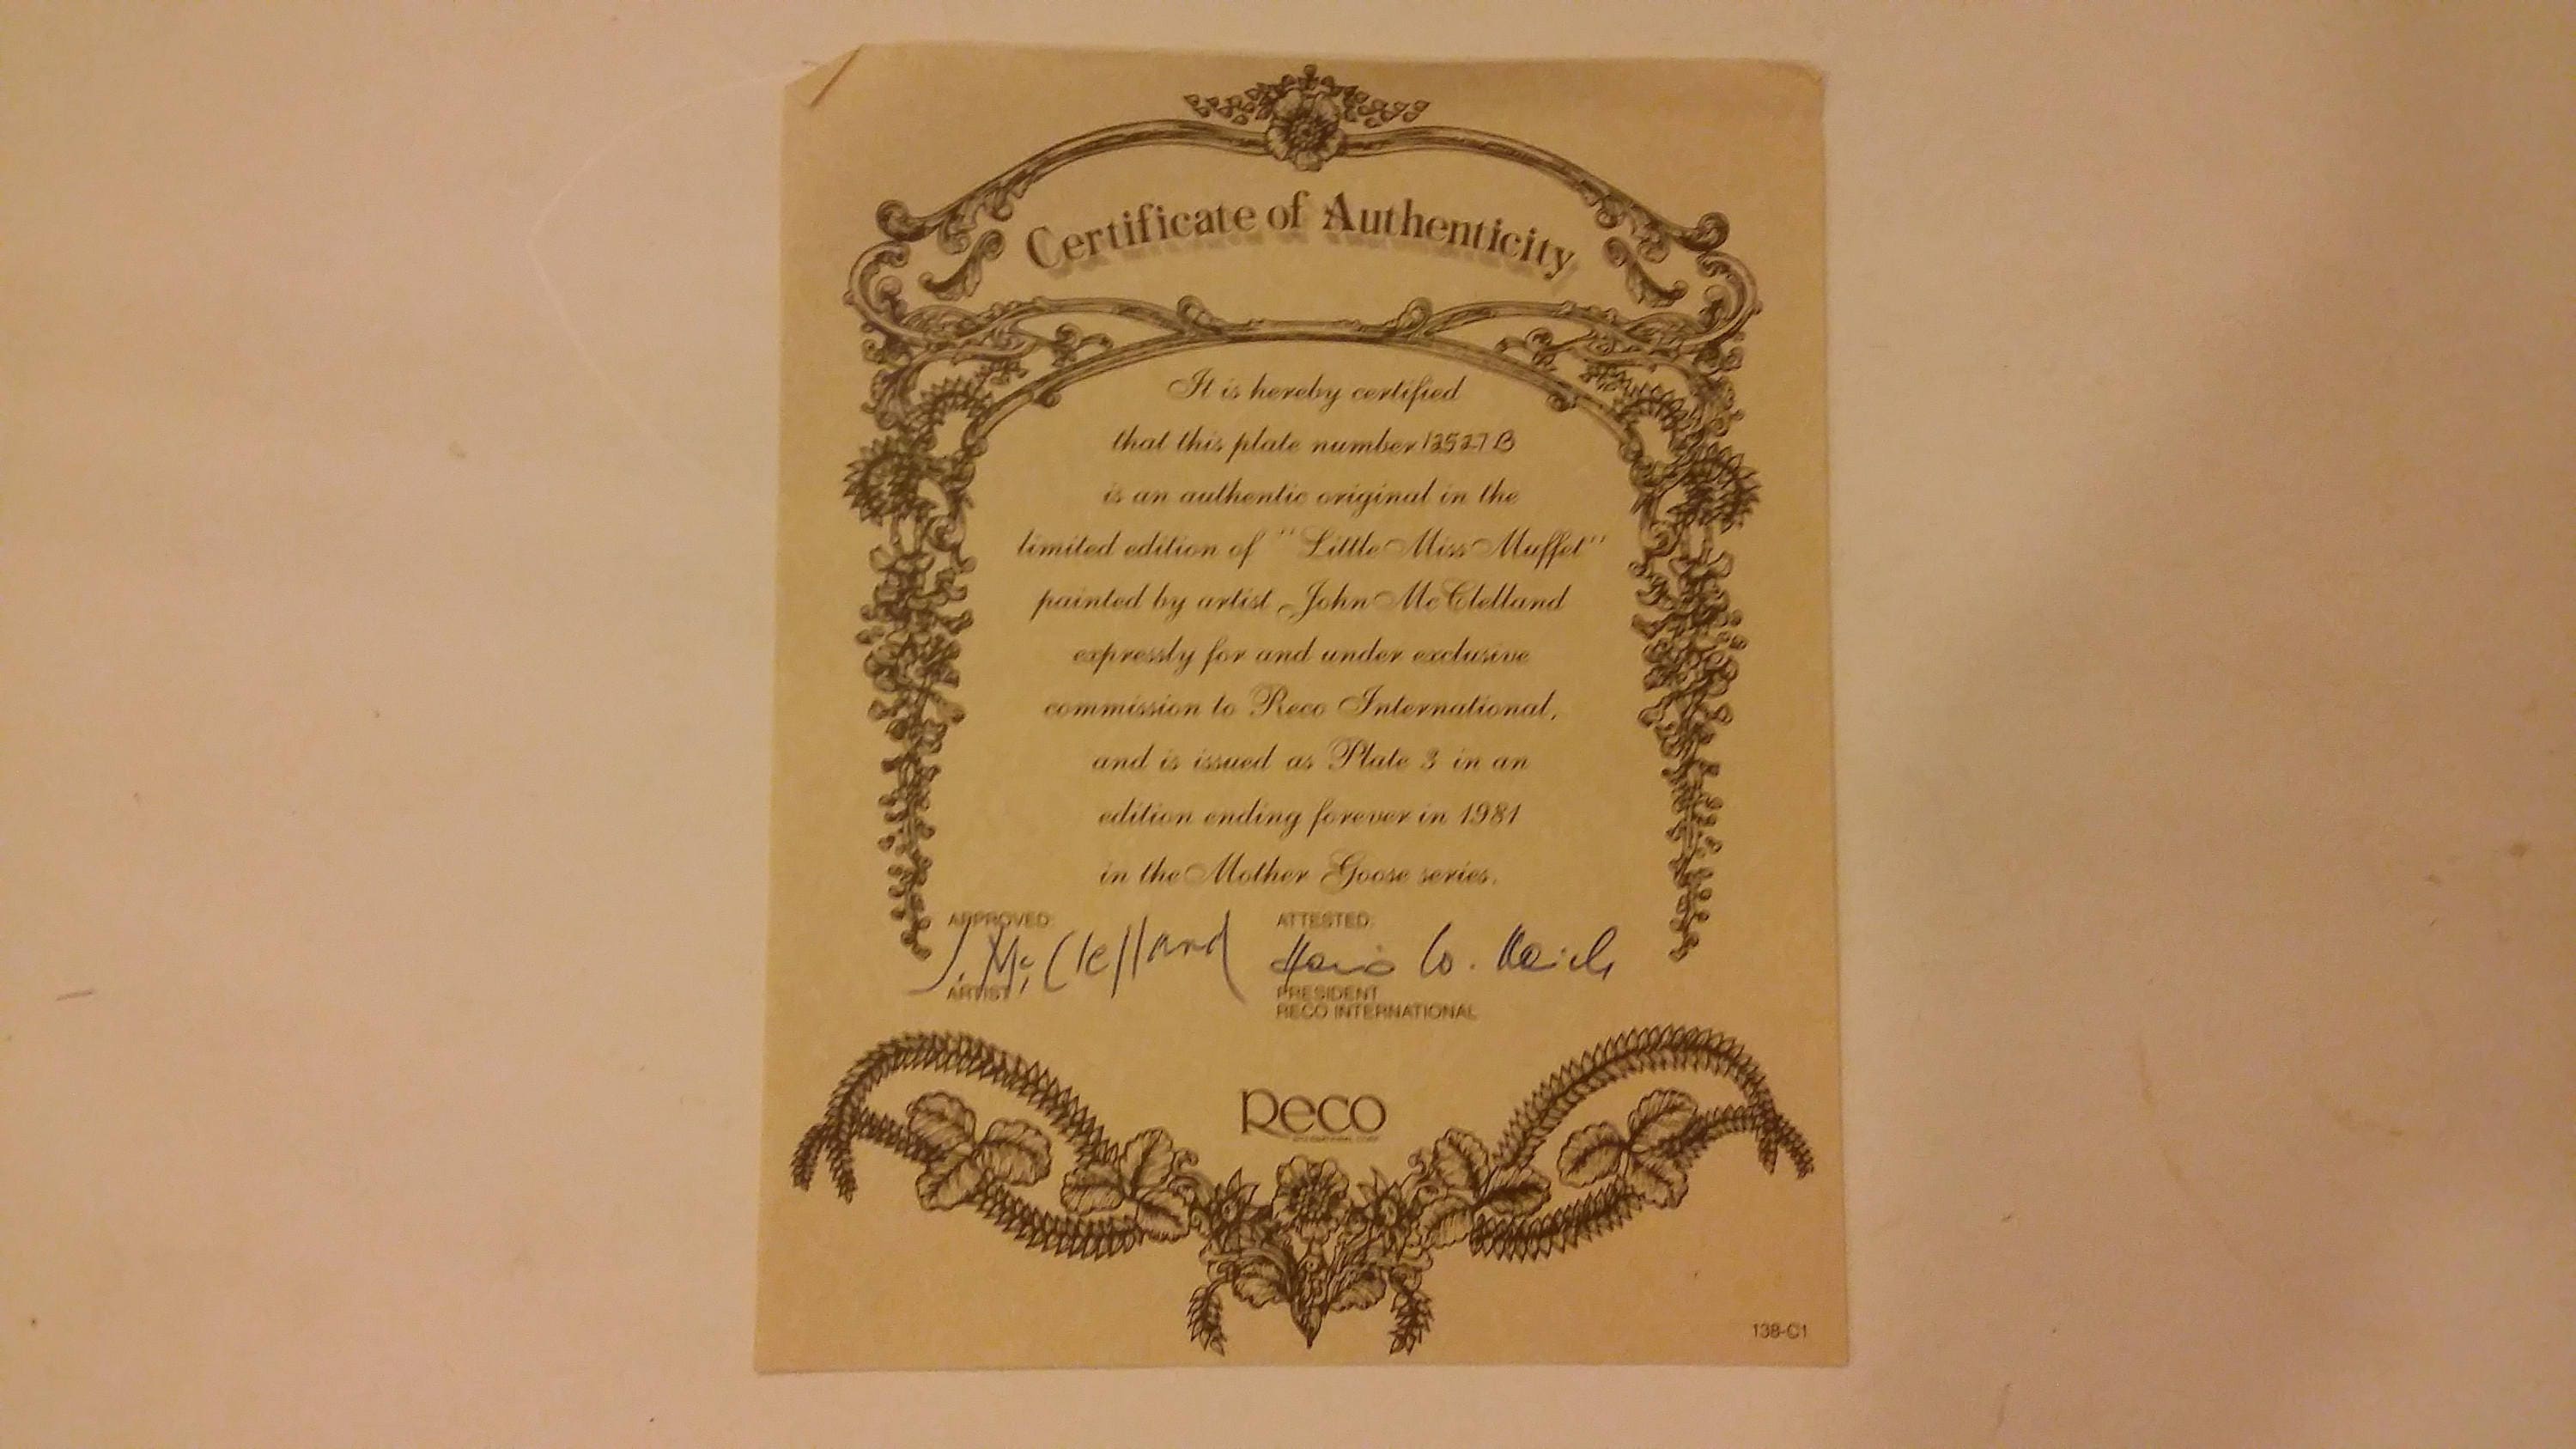 Certificate of Authenticity
It is hereby certified
that this plate number 12527B
is an authentic original in the
limited edition of "Little Miss Muffet"
painted by artist John McClelland
expressly for and under exclusive
commission to Reco International,
and is issued as Plate 3 in an
edition ending forever in 1981
in the Mother Goose series.
APPROVED: ATTESTED:
J. McClelland
ARTIST PRESIDENT
RECO INTERNATIONAL
Reco
138-C1